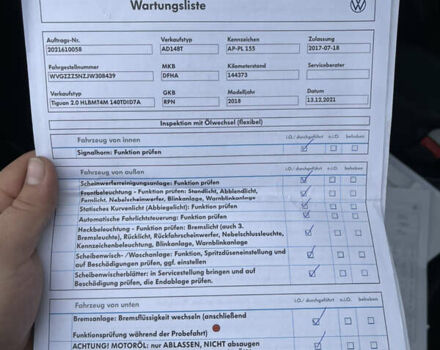 Wartungsliste
Auftrags-Nr. Verkaufstyp Kennzeichen Zulassung
2021610058 AD14BT AP-PL 155 2017-07-18
Fahrgestellnummer MKB Kilometerstand Serviceberater
WVGZZZ5NZJW308439 DFHA 144373
Verkaufstyp GKB Modelljahr Datum
Tiguan 2.0 HLBMT4M 140TDID7A RPN 2018 13.12.2021
Inspektion mit Ölwechsel (flexibel)
Fahrzeug von innen i.O./durchgeführt n.i.O. behoben
Signalhorn: Funktion prüfen
Fahrzeug von außen i.O./durchgeführt n.i.O. behoben
Scheinwerferreinigungsanlage: Funktion prüfen
Frontbeleuchtung - Funktion prüfen: Standlicht, Abblendlicht,
Fernlicht, Nebelscheinwerfer, Blinkanlage, Warnblinkanlage
Statisches Kurvenlicht (Abbiegelicht): Funktion prüfen
Automatische Fahrlichtsteuerung: Funktion prüfen
Heckbeleuchtung - Funktion prüfen: Bremslicht (auch 3.
Bremsleuchte), Rücklicht, Rückfahrscheinwerfer, Nebelschlussleuchte,
Kennzeichenbeleuchtung, Blinkanlage, Warnblinkanlage
Scheibenwisch- /Waschanlage: Funktion, Spritzdüseneinstellung und
auf Beschädigungen prüfen, ggf. einstellen
Scheibenwischerblätter: in Servicestellung bringen und auf
Beschädigung prüfen, die Endablage prüfen.
Fahrzeug von unten i.O./durchgeführt n.i.O. behoben
Bremsanlage: Bremsflüssigkeit wechseln (anschließend
Funktionsprüfung während der Probefahrt)
ACHTUNG! MOTORÖL: nur ABLASSEN, NICHT absaugen